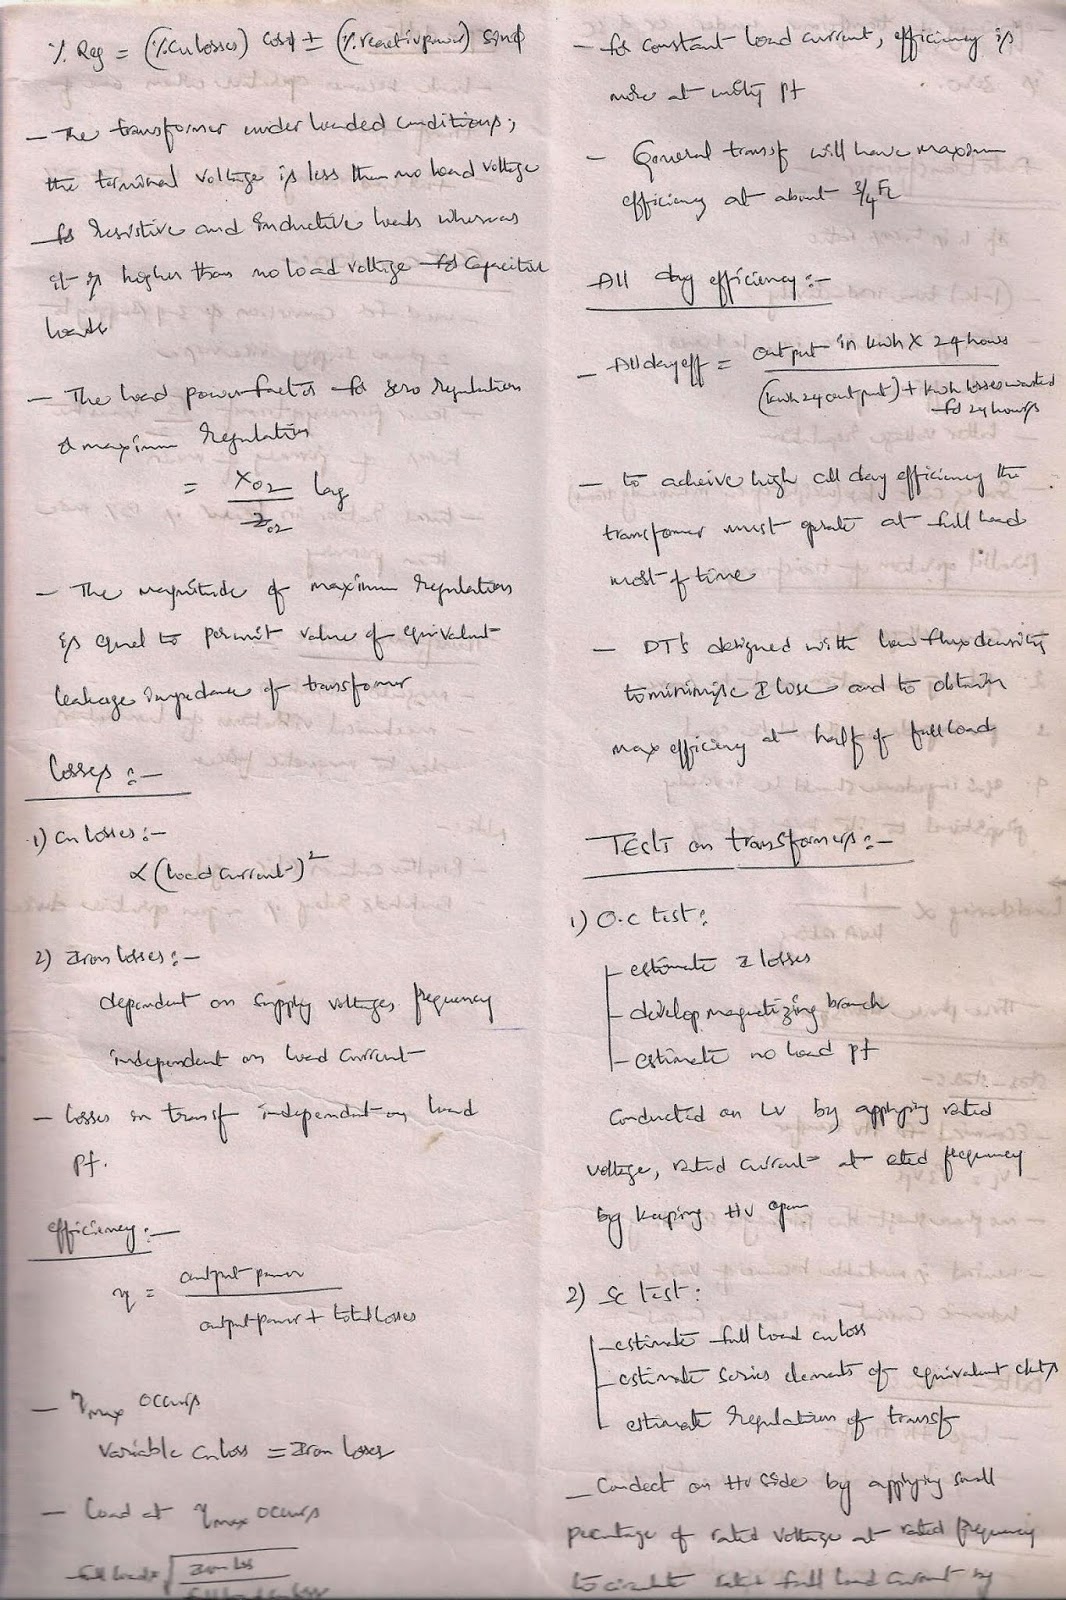 % Reg = (% cu losses) cosϕ ± (% reactivpower) sinϕ
- The transformer under loaded conditions,
the terminal voltage is less than no load voltage
for resistive and inductive loads whereas
it is higher than no load voltage for capacitive
loads
- The load power factor for zero regulation
& maximum regulation
= X02 / Z02 lag
- The magnitude of maximum regulation
is equal to perunit value of equivalent
leakage impedance of transformer
losses :-
1) cu losses :-
∝ (load current)²
2) Iron losses :-
dependent on supply voltages frequency
independent on load current
- losses in transf independent on load
pf.
efficiency :-
η = output power / output power + total losses
- ηmax occurs
variable cu loss = Iron losses
- load at ηmax occurs
full load × √ Iron loss / full load cu loss
- for constant load current, efficiency is
more at unity pf
- General transf will have maximum
efficiency at about 3/4 FL
All day efficiency :-
- All day eff = output in kwh × 24 hours / (kwh 24 output) + kwh losses wasted
for 24 hours
- to acheive high all day efficiency the
transformer must operate at full load
most of time
- DTs designed with low flux density
to minimise I loss and to obtain
max efficiency at half of full load
TESTs on transformers :-
1) O.C test :
- estimate I losses
- develop magnetizing branch
- estimate no load pf
Conducted on LV by applying rated
voltage, rated current at rated frequency
by keeping HV open
2) SC test :
- estimate full load cu loss
- estimate series elements of equivalent ckts
- estimate regulation of transf
- Conduct on HV side by applying small
percentage of rated voltage at rated frequency
to circulate rated full load current by